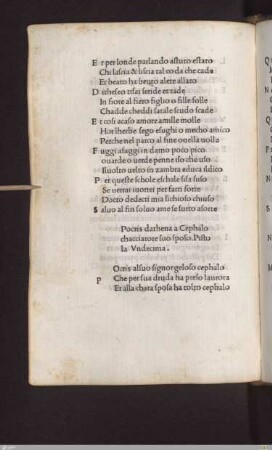 E t per londe parlando asturo estaro
Chi lascia & liscia tal coda che cada
Et beato ha bruto alere allato
D
In fiore al fiero figlio o fille folle
Chadde cheddi fatale scudo scade
E t cosi acaso amore amille molle
Hor lherbe sego esughi o mecho amico
Perche nel parto al fine ouella uolla
F uggi afaggi in damo poto pico
ouarde o uerde penne iso che uso
Iuostro uelro in zambra edura sidico
P er queste schole eschale fila fuso
Se uerrai uorrei per farti forte
Dacto dedecti mia sichioso chiuso
S aluo al fin soluo ame se surto asorte
Pocris dathena a Cephilo
chacciatore suo sposo. Pisto
la Vndecima.
Ocris alsuo signor geloso cephalo
P Che per sua druda ha preso laurora
Et alla chara sposa ha tolto cephalo